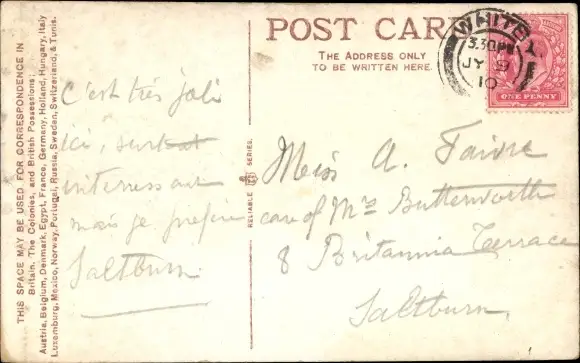 POST CARD
THE ADDRESS ONLY
TO BE WRITTEN HERE.
WHITBY
3.30PM
JY 9
10
ONE PENNY
THIS SPACE MAY BE USED FOR CORRESPONDENCE IN
Britain, The Colonies, and British Possessions;
Austria, Belgium, Denmark, Egypt, France, Germany, Holland, Hungary, Italy
Luxemburg, Mexico, Norway, Portugal, Russia, Sweden, Switzerland, & Tunis.
C'est très joli
ici, surtout
interessant
mais je prefère
Saltburn
RELIABLE SERIES.
Miss A. Faivre
care of Mrs Butterworth
8 Britannia Terrace
Saltburn.